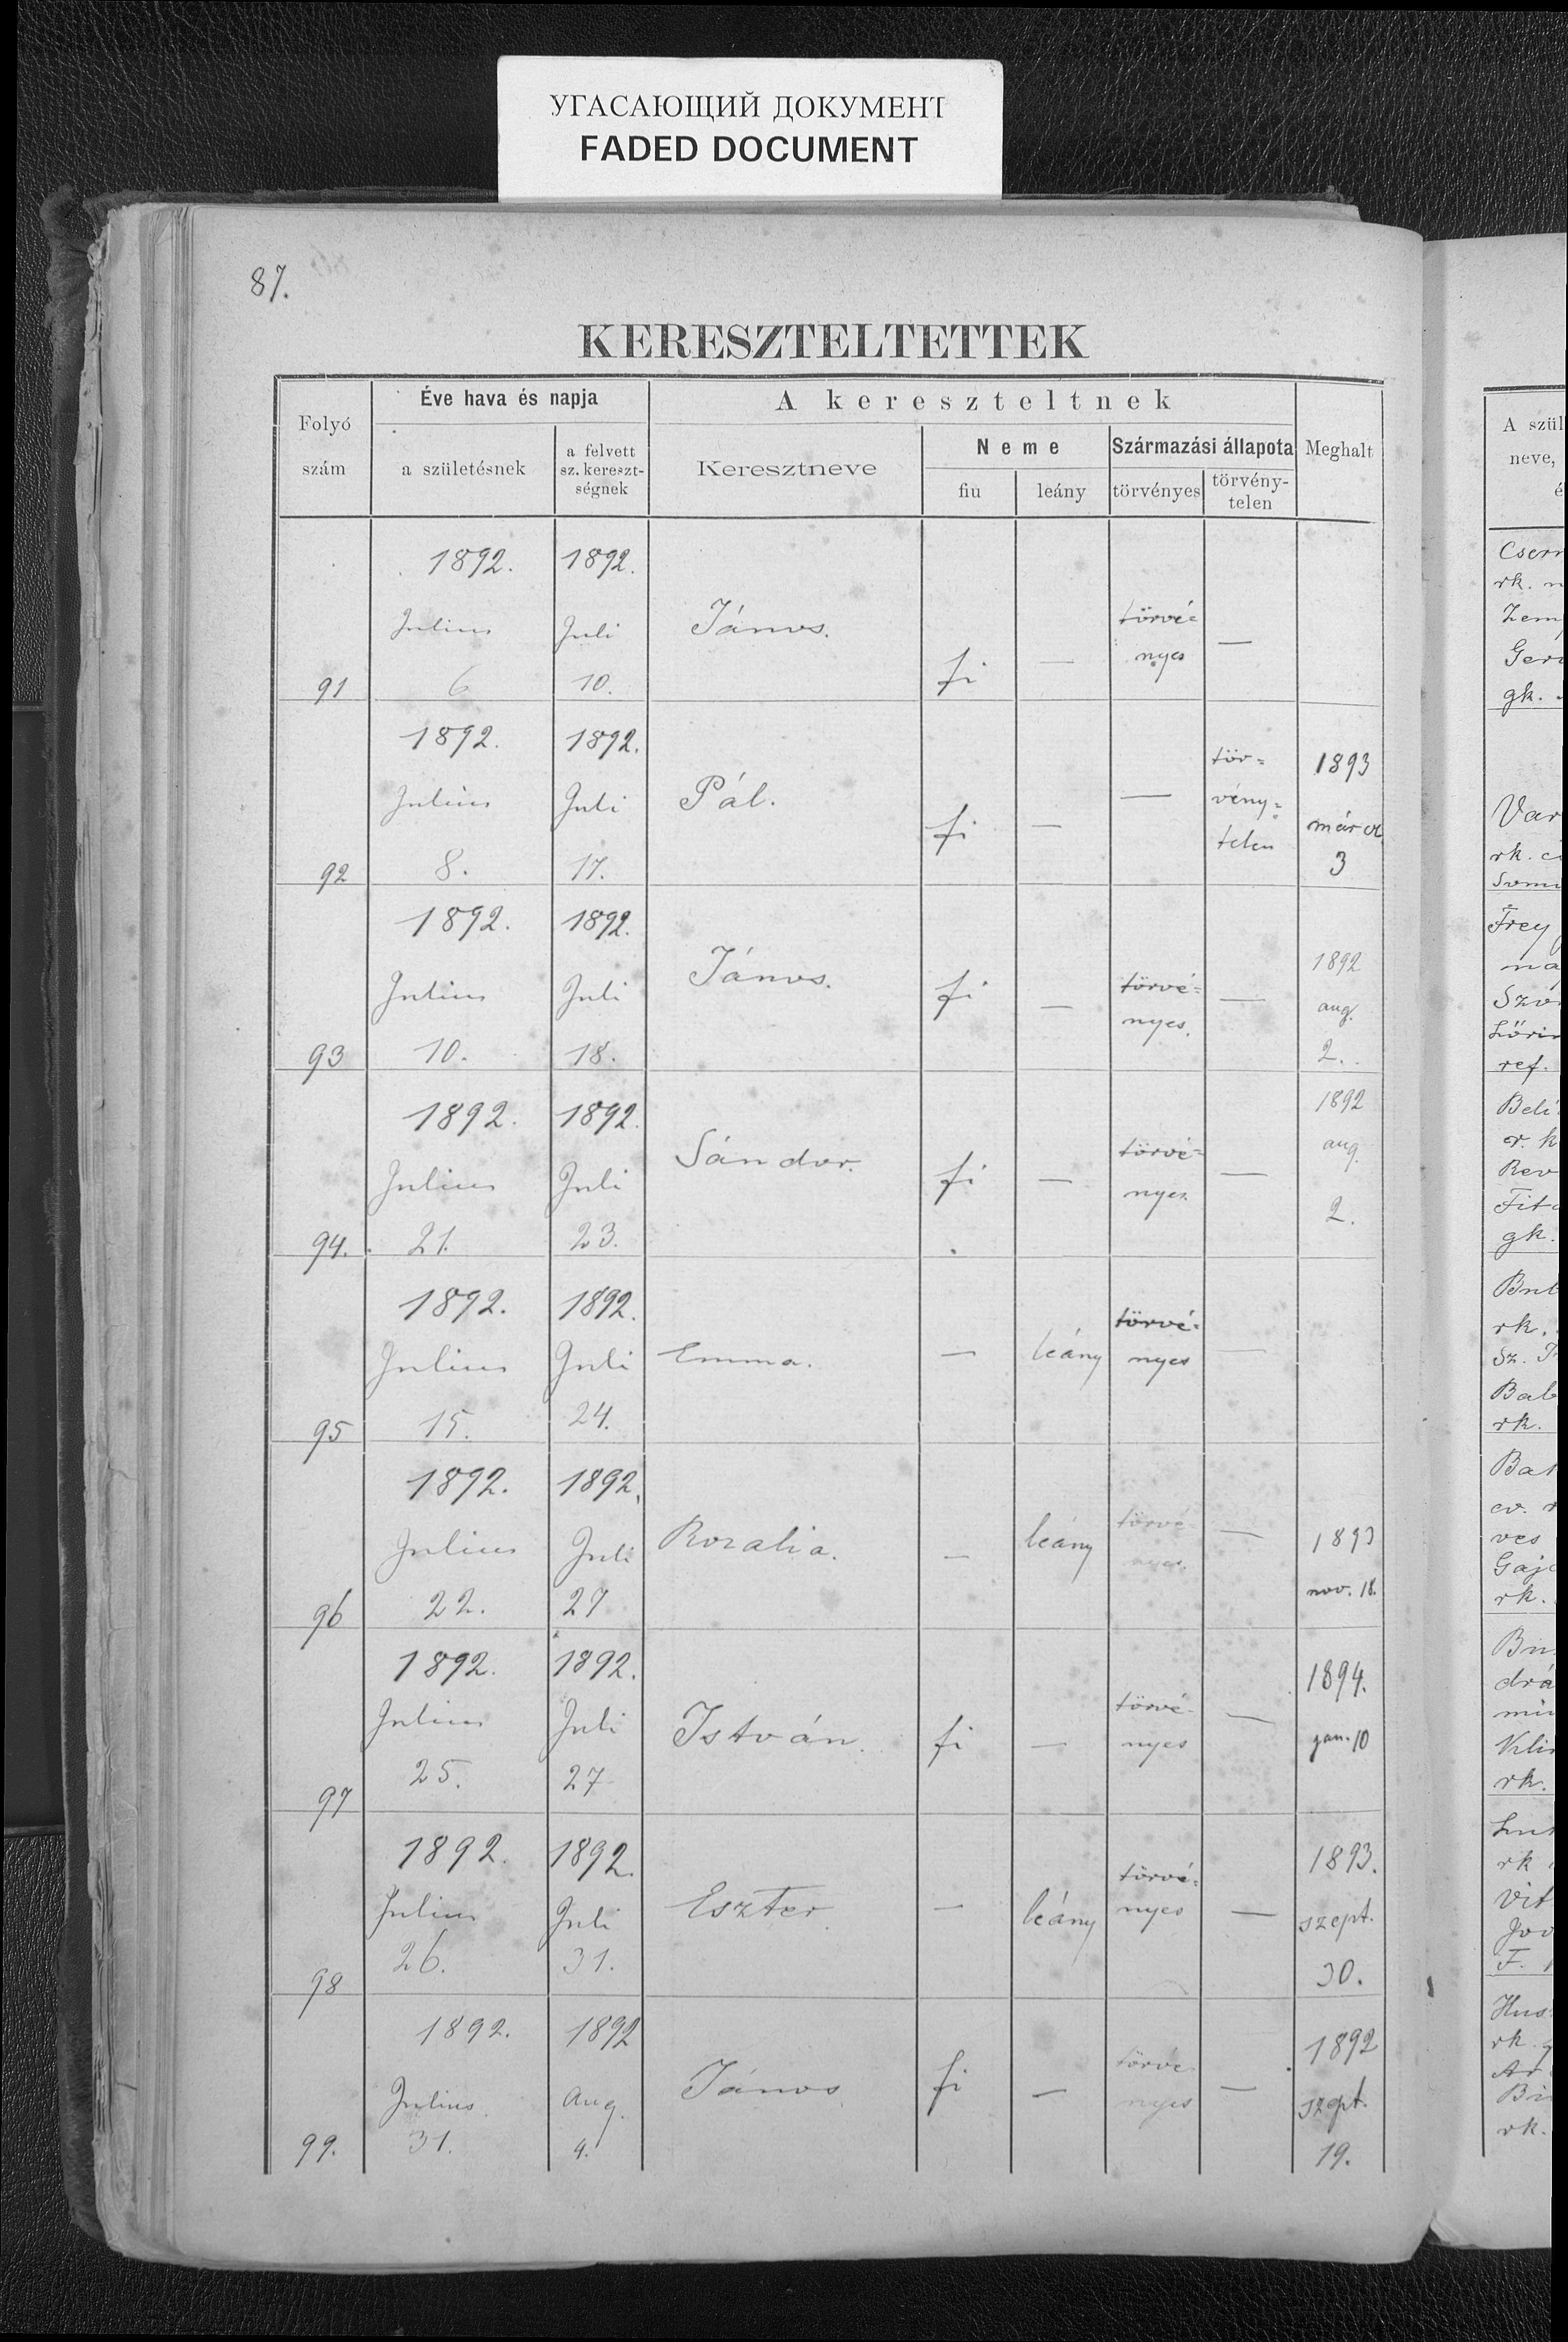 УГАСАЮЩИЙ ДОКУМЕНТ
FADED DOCUMENT
87.
KERESZTELTETTEK
Folyó szám
Éve hava és napja
a születésnek
a felvett sz. kereszt-ségnek
A kereszteltnek
Keresztneve
Neme
fiu
leány
Származási állapota
törvényes
törvény-telen
Meghalt
91 1892. Julius 6 1892. Juli 10. János. fi — törvé= nyes —
92 1892. Julius 8. 1892. Juli 17. Pál. fi — — tör= vény= telen 1893 3
93 1892. Julius 10. 1892. Juli 18. János. fi — törvé= nyes. — 1892 aug. 2.
94. 1892. Julius 21. 1892. Juli 23. Sándor. fi — törvé= nyes. — 1892 aug. 2.
95 1892. Julius 15. 1892. Juli 24. Emma. — leány törvé= nyes —
96 1892. Julius 22. 1892. Juli 27 Rozalia. — leány törvé nyes. — 1893 nov. 18.
97 1892. Julius 25. 1892. Juli 27 István. fi — törvé- nyes — 1894. jan. 10
98 1892. Julius 26. 1892. Juli 31. Eszter. — leány törvé= nyes — 1893. szept. 30.
99. 1892. Julius. 31. 1892 Aug. 4. János fi — törvé nyes — 1892 szept. 19.
A szül
neve,
é
rk.
gk.
Var
rk.
Frey
ref.
gk.
rk.
Sz.
Bab
rk.
ev.
ves
rk.
drá
rk.
rk
rk.
rk.